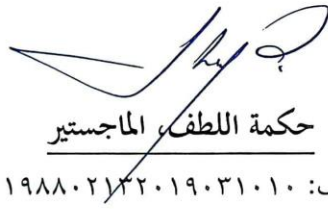 حكمة اللطف، الماجستير
: ١٩٨٨٠٢١٣٢٠١٩٠٣١٠١٠